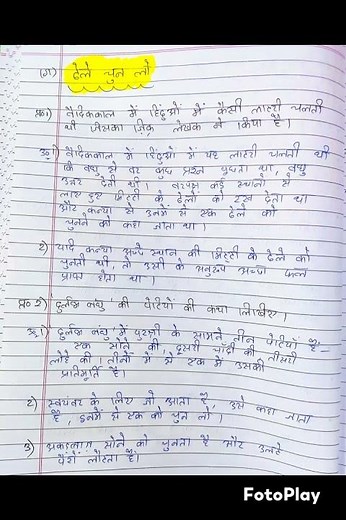 (ग) ढेले चुन लो
प्र०१) वैदिककाल में हिंदुओं में कैसी लाटरी चलती
थी जिसका ज़िक्र लेखक ने किया है।
उ० १) वैदिककाल में हिंदुओं में यह लाटरी चलती थी
कि वधू से वर कुछ प्रश्न पूछता था, वधू
उत्तर देती थी। वरपक्ष कई स्थानों से
लाए हुए मिट्टी के ढेलों को रख देता था
और कन्या से उनमें से एक ढेले को
चुनने को कहा जाता था।
२) यदि कन्या अच्छे स्थान की मिट्टी के ढेले को
चुनती थी, तो उसी के अनुरूप अच्छा फल
प्राप्त होता था।
प्र० २) दुर्लभ बंधु की पेटियों की कथा लिखिए।
उ० १) 'दुर्लभ बंधु' में पुरश्री के सामने तीन पेटियाँ हैं-
एक सोने की, दूसरी चाँदी की तीसरी
लोहे की। तीनों में से एक में उसकी
प्रतिमूर्ति है।
२) स्वयंवर के लिए जो आता है, उसे कहा जाता
है, इनमें से एक को चुन लो।
३) अकड़बाज़ सोने को चुनता है और उलटे
पैरों लौटता है।
FotoPlay